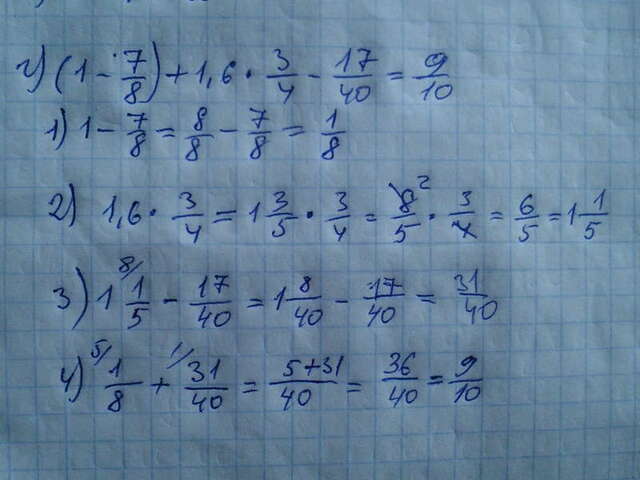 2) (1 - 7/8) + 1,6 · 3/4 - 17/40 = 9/10
1) 1 - 7/8 = 8/8 - 7/8 = 1/8
2) 1,6 · 3/4 = 1 3/5 · 3/4 = 8/5 · 3/4 = 6/5 = 1 1/5
3) 1 1/5 - 17/40 = 1 8/40 - 17/40 = 31/40
4) 1/8 + 31/40 = 5+31/40 = 36/40 = 9/10